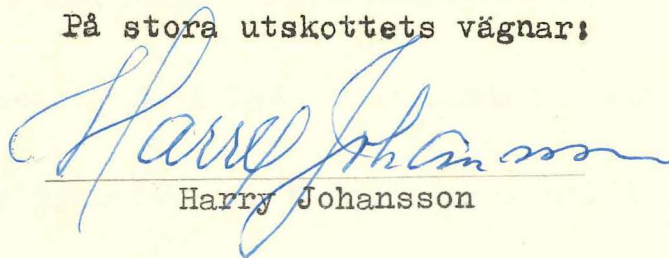 På stora utskottets vägnar:
Harry Johansson
Harry Johansson